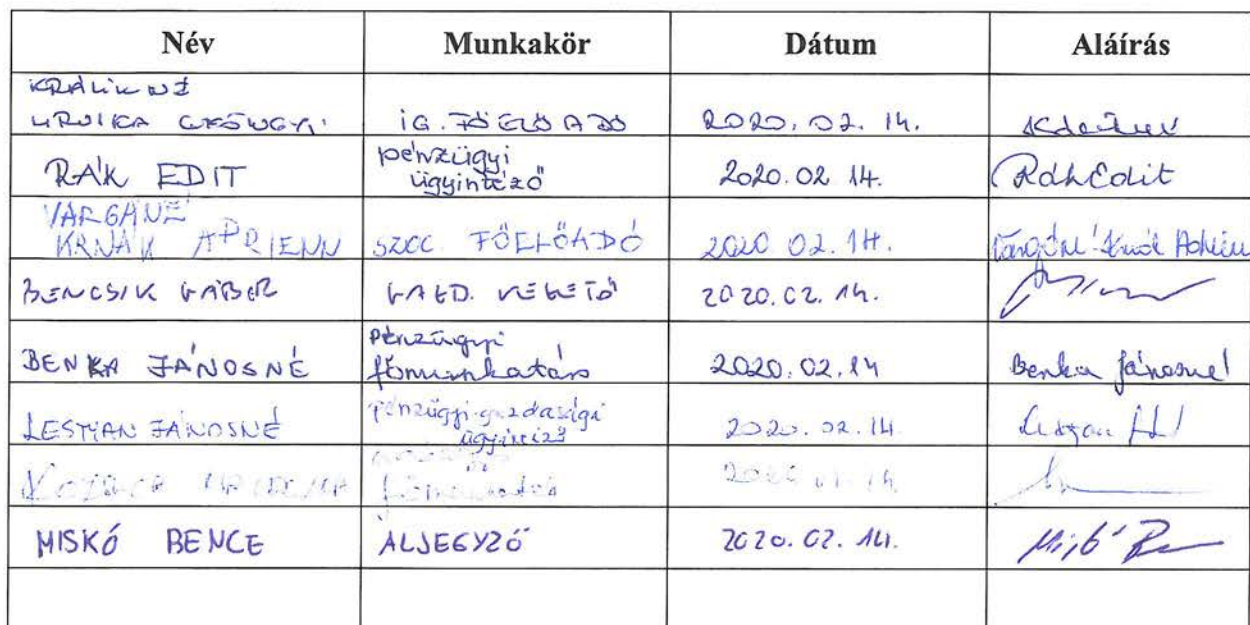 Név Munkakör Dátum Aláírás
KRÁLIK NÉ
GYÖNGYI IG. FŐELŐADÓ 2020. 02. 14.
RÁK EDIT pénzügyi
ügyintéző 2020.02.14. Rák Edit
VARGÁNÉ
KRNÁK ADRIENN SZOC. FŐELŐADÓ 2020 02. 14. Vargáné Krnák Adrienn
BENCSIK GÁBOR VEZETŐ 2020.02.14.
BENKA JÁNOSNÉ pénzügyi
főmunkatárs 2020.02.14 Benka Jánosné
LESTYAN JÁNOSNÉ pénzügyi-gazdasági
ügyintéző 2020.02.14. Lestyan
főmunkatárs
MISKÓ BENCE ALJEGYZŐ 2020.02.14. Miskó